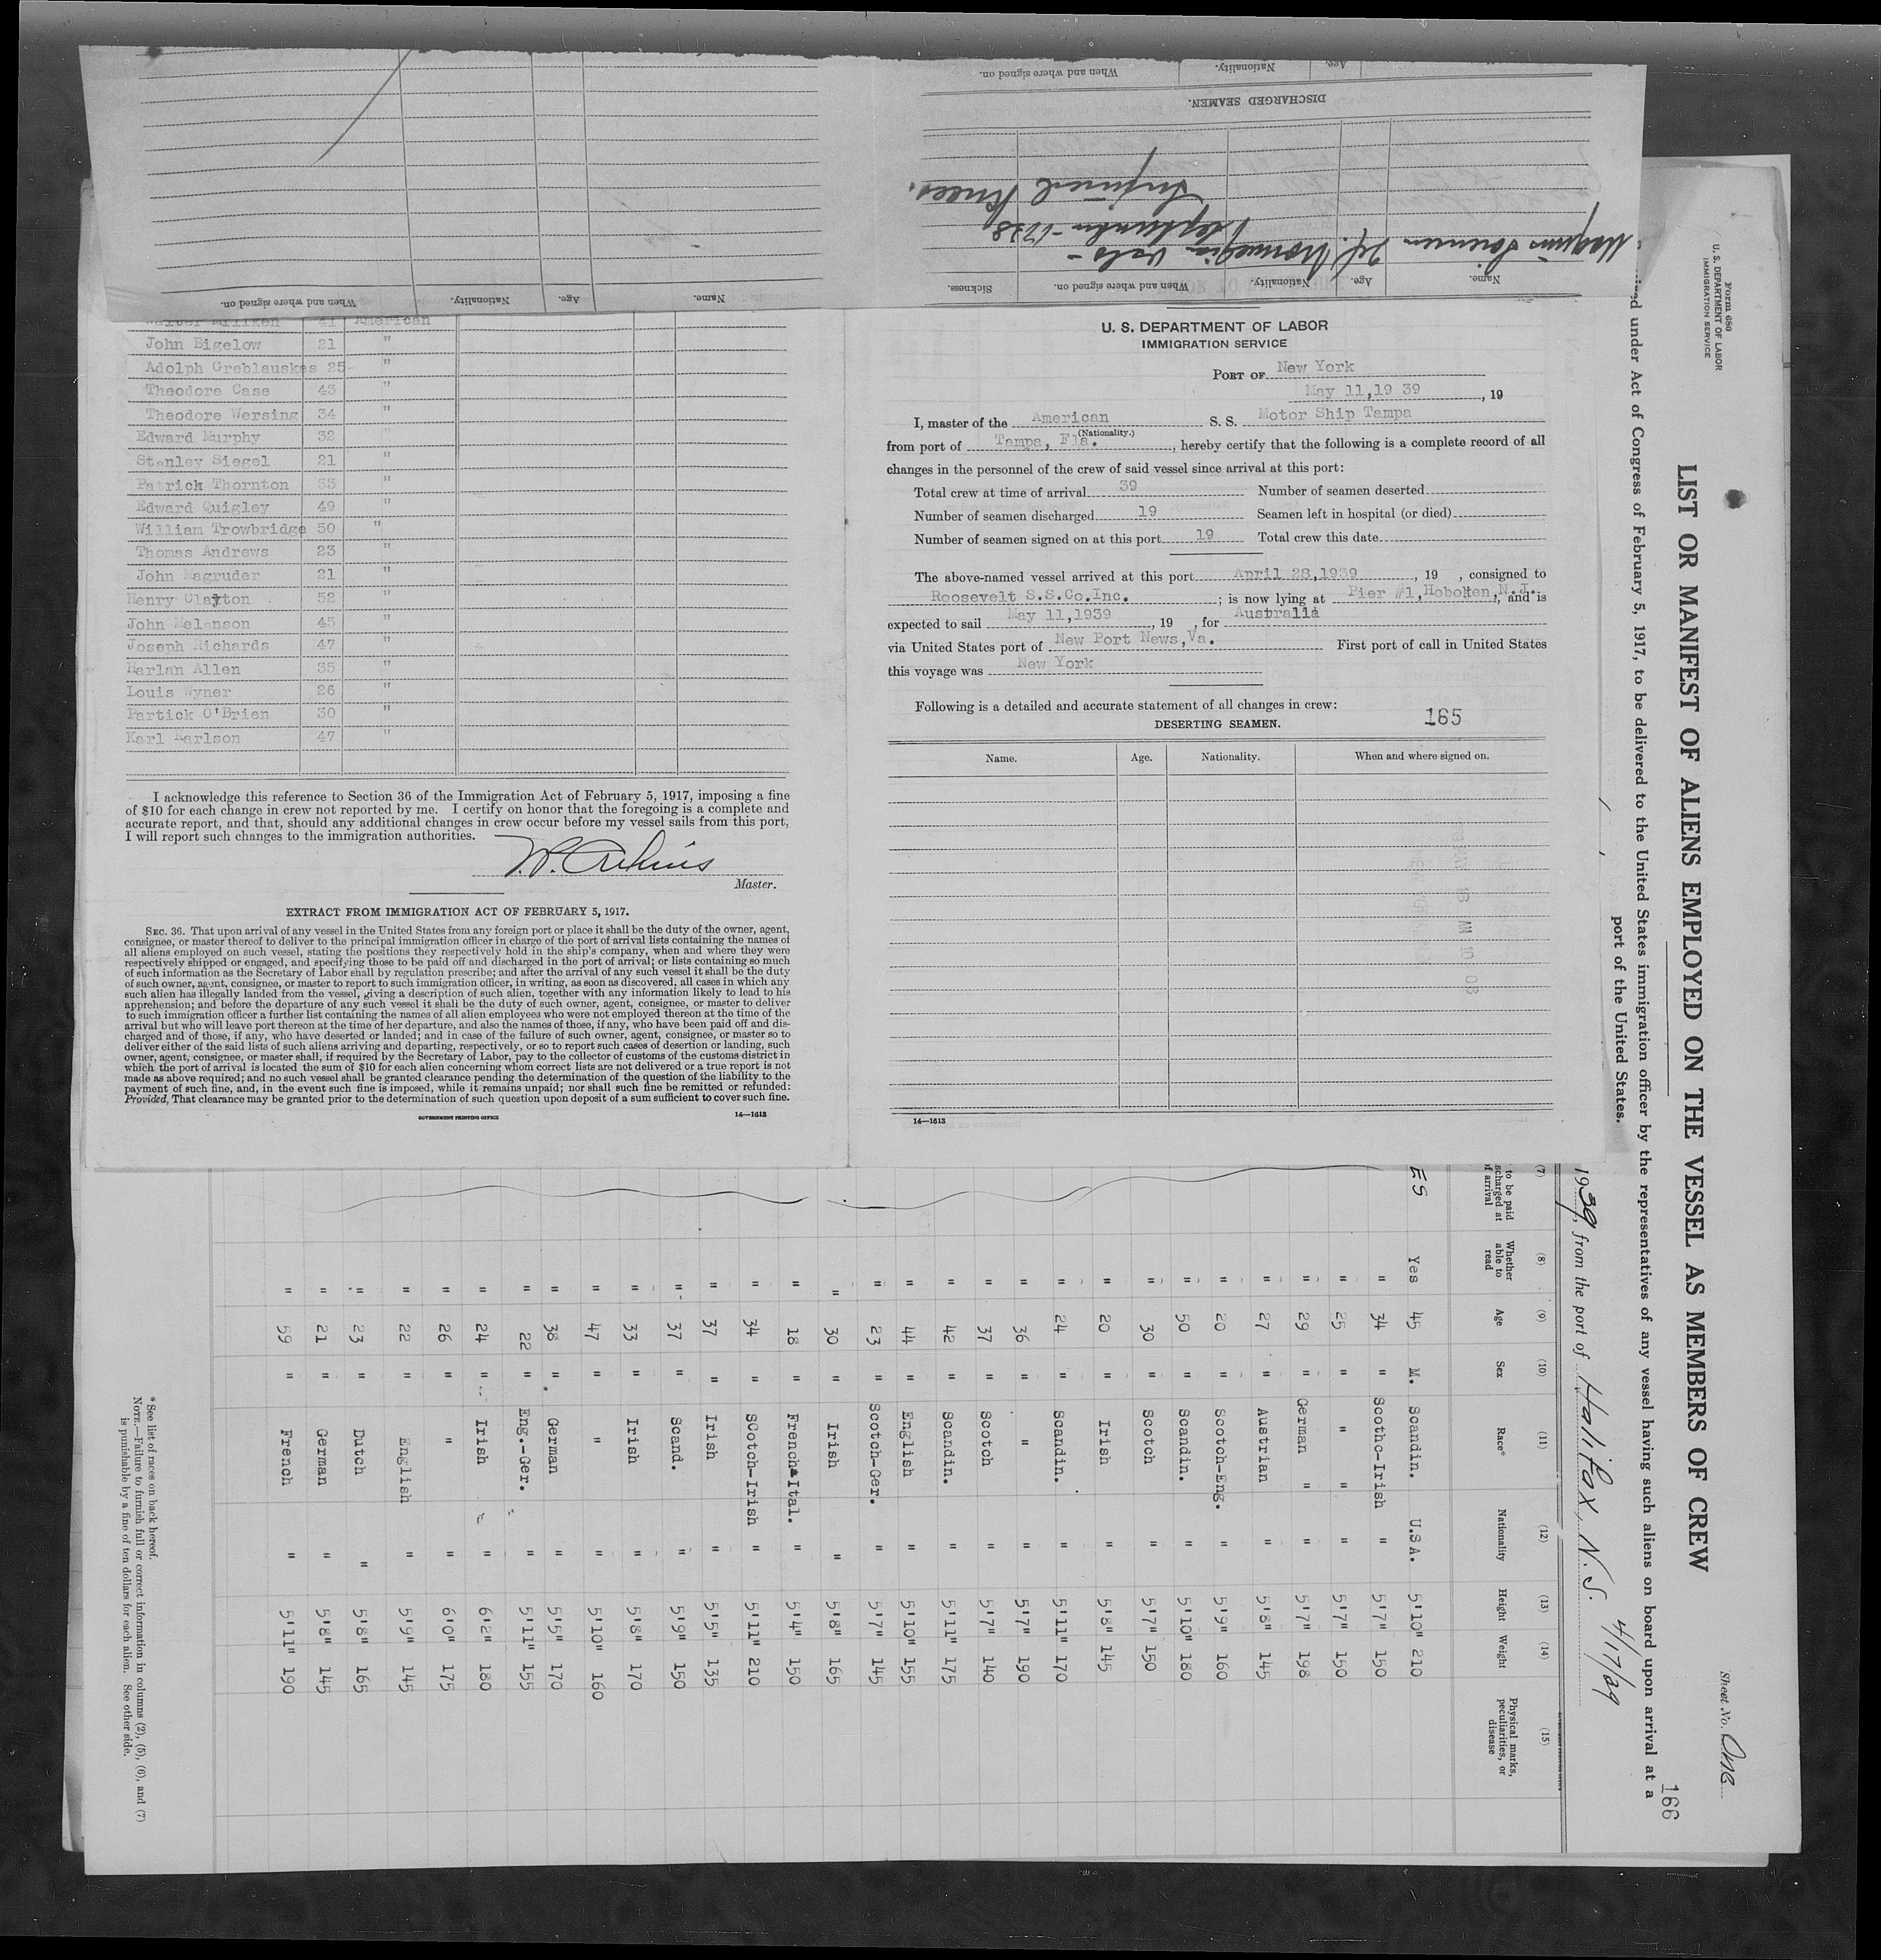 When and where signed on.
Nationality.
Age.
DISCHARGED SEAMEN.
Injured Knees.
Norwegian
Name.
Age.
Nationality.
When and where signed on.
Sickness.
Name.
Age.
Nationality.
When and where signed on.
Walter Milliken 41 American
John Bigelow 21 "
Adolph Greblauskas 25- "
Theodore Case 43 "
Theodore Wersing 34 "
Edward Murphy 32 "
Stanley Siegel 21 "
Patrick Thornton 33 "
Edward Quigley 49 "
William Trowbridge 50 "
Thomas Andrews 23 "
John Magruder 21 "
Henry Clayton 52 "
John Melanson 45 "
Joseph Richards 47 "
Harlan Allen 35 "
Louis Wyner 26 "
Partick O'Brien 30 "
Karl Karlson 47 "
I acknowledge this reference to Section 36 of the Immigration Act of February 5, 1917, imposing a fine
of $10 for each change in crew not reported by me. I certify on honor that the foregoing is a complete and
accurate report, and that, should any additional changes in crew occur before my vessel sails from this port,
I will report such changes to the immigration authorities.
Master.
EXTRACT FROM IMMIGRATION ACT OF FEBRUARY 5, 1917.
SEC. 36. That upon arrival of any vessel in the United States from any foreign port or place it shall be the duty of the owner, agent,
consignee, or master thereof to deliver to the principal immigration officer in charge of the port of arrival lists containing the names of
all aliens employed on such vessel, stating the positions they respectively hold in the ship's company, when and where they were
respectively shipped or engaged, and specifying those to be paid off and discharged in the port of arrival; or lists containing so much
of such information as the Secretary of Labor shall by regulation prescribe; and after the arrival of any such vessel it shall be the duty
of such owner, agent, consignee, or master to report to such immigration officer, in writing, as soon as discovered, all cases in which any
such alien has illegally landed from the vessel, giving a description of such alien, together with any information likely to lead to his
apprehension; and before the departure of any such vessel it shall be the duty of such owner, agent, consignee, or master to deliver
to such immigration officer a further list containing the names of all alien employees who were not employed thereon at the time of the
arrival but who will leave port thereon at the time of her departure, and also the names of those, if any, who have been paid off and dis-
charged and of those, if any, who have deserted or landed; and in case of the failure of such owner, agent, consignee, or master so to
deliver either of the said lists of such aliens arriving and departing, respectively, or so to report such cases of desertion or landing, such
owner, agent, consignee, or master shall, if required by the Secretary of Labor, pay to the collector of customs of the customs district in
which the port of arrival is located the sum of $10 for each alien concerning whom correct lists are not delivered or a true report is not
made as above required; and no such vessel shall be granted clearance pending the determination of the question of the liability to the
payment of such fine, and, in the event such fine is imposed, while it remains unpaid; nor shall such fine be remitted or refunded:
Provided, That clearance may be granted prior to the determination of such question upon deposit of a sum sufficient to cover such fine.
GOVERNMENT PRINTING OFFICE 14—1613
U. S. DEPARTMENT OF LABOR
IMMIGRATION SERVICE
PORT OF New York
May 11,19 39, 19
I, master of the American S. S. Motor Ship Tampa
(Nationality.)
from port of Tampa, Fla., hereby certify that the following is a complete record of all
changes in the personnel of the crew of said vessel since arrival at this port:
Total crew at time of arrival 39 Number of seamen deserted
Number of seamen discharged 19 Seamen left in hospital (or died)
Number of seamen signed on at this port 19 Total crew this date
The above-named vessel arrived at this port April 28,1939, 19 , consigned to
Roosevelt S.S.Co.Inc.; is now lying at Pier #1,Hoboken,N.J., and is
expected to sail May 11,1939, 19 , for Australia
via United States port of New Port News,Va. First port of call in United States
this voyage was New York
Following is a detailed and accurate statement of all changes in crew:
165
DESERTING SEAMEN.
Name. Age. Nationality. When and where signed on.
14—1613
Form 680
U. S. DEPARTMENT OF LABOR
IMMIGRATION SERVICE
Sheet No. One
LIST OR MANIFEST OF ALIENS EMPLOYED ON THE VESSEL AS MEMBERS OF CREW
166
under Act of Congress of February 5, 1917, to be delivered to the United States immigration officer by the representatives of any vessel having such aliens on board upon arrival at a
port of the United States.
1939, from the port of Halifax, N. S. 4/17/39
(7) (8) (9) (10) (11) (12) (13) (14) (15)
to be paid
at
of arrival
Whether able to read
Age
Sex
Race*
Nationality
Height
Weight
Physical marks, peculiarities, or disease
ES Yes 45 M. Scandin. U.SA. 5'10" 210
" 34 " Scotho-Irish " 5'7" 150
" 25 " " " " 5'7" 150
" 29 " German " " 5'7" 198
" 27 " Austrian " 5'8" 145
" 20 " Scotch-Eng. " 5'9" 160
" 50 " Scandin. " 5'10" 180
" 30 " Scotch " 5'7" 150
" 20 " Irish " 5'8" 145
" 24 " Scandin. " 5'11" 170
" 36 " " " 5'7" 190
" 37 " Scotch " 5'7" 140
" 42 " Scandin. " 5'11" 175
" 44 " English " 5'10" 155
" 23 " Scotch-Ger. " 5'7" 145
" 30 " Irish " 5'8" 165
" 18 " French&Ital. " 5'4" 150
" 34 " SCotch-Irish " 5'11" 210
" 37 " Irish " 5'5" 135
" 37 " Scand. " 5'9" 150
" 33 " Irish " 5'8" 170
" 47 " " " 5'10" 160
" 38 " German " 5'5" 170
" 22 " Eng.-Ger. " 5'11" 155
" 24 " Irish " 6'2" 180
" 26 " " " 6'0" 175
" 22 " English " 5'9" 145
" 23 " Dutch " 5'8" 165
" 21 " German " 5'8" 145
" 59 " French " 5'11" 190
* See list of races on back hereof.
NOTE.—Failure to furnish full or correct information in columns (2), (5), (6), and (7)
is punishable by a fine of ten dollars for each alien. See other side.